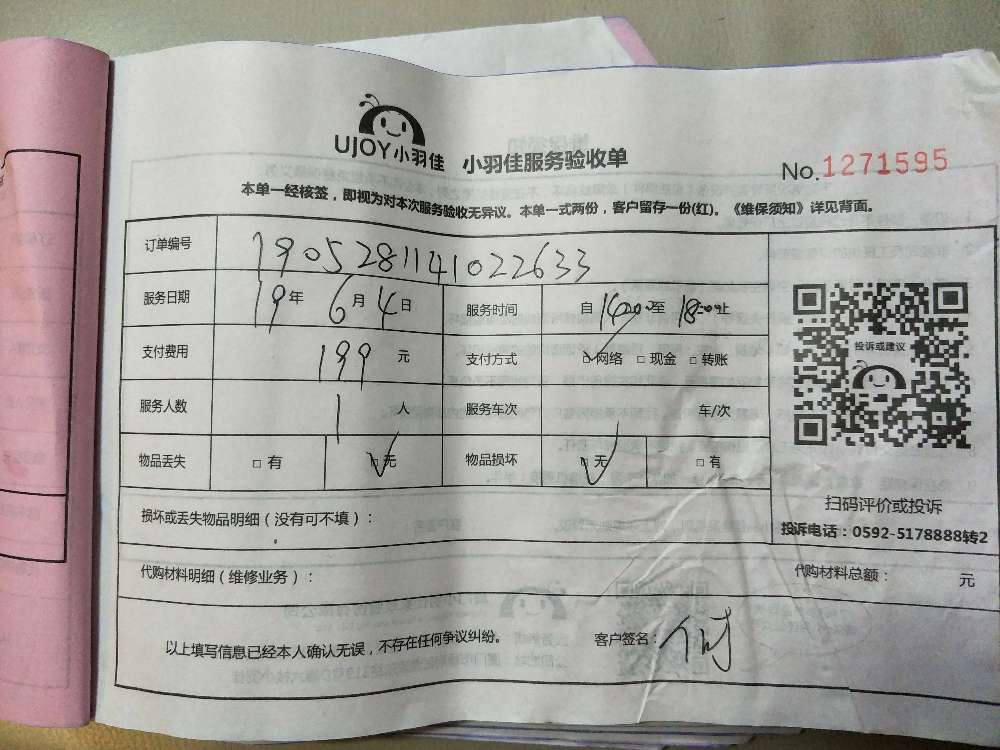 UJOY小羽佳 小羽佳服务验收单
No.1271595
本单一经核签，即视为对本次服务验收无异议。本单一式两份，客户留存一份(红)。《维保须知》详见背面。
订单编号 1905281141022633
服务日期 19年6月4日 服务时间 自1400至1800止
支付费用 199元 支付方式 ☑网络 □现金 □转账
服务人数 1人 服务车次 车/次
物品丢失 □有 ☑无 物品损坏 ☑无 □有
投诉或建议
扫码评价或投诉
投诉电话：0592-5178888转2
损坏或丢失物品明细（没有可不填）：
代购材料明细（维修业务）： 代购材料总额： 元
以上填写信息已经本人确认无误，不存在任何争议纠纷。 客户签名：